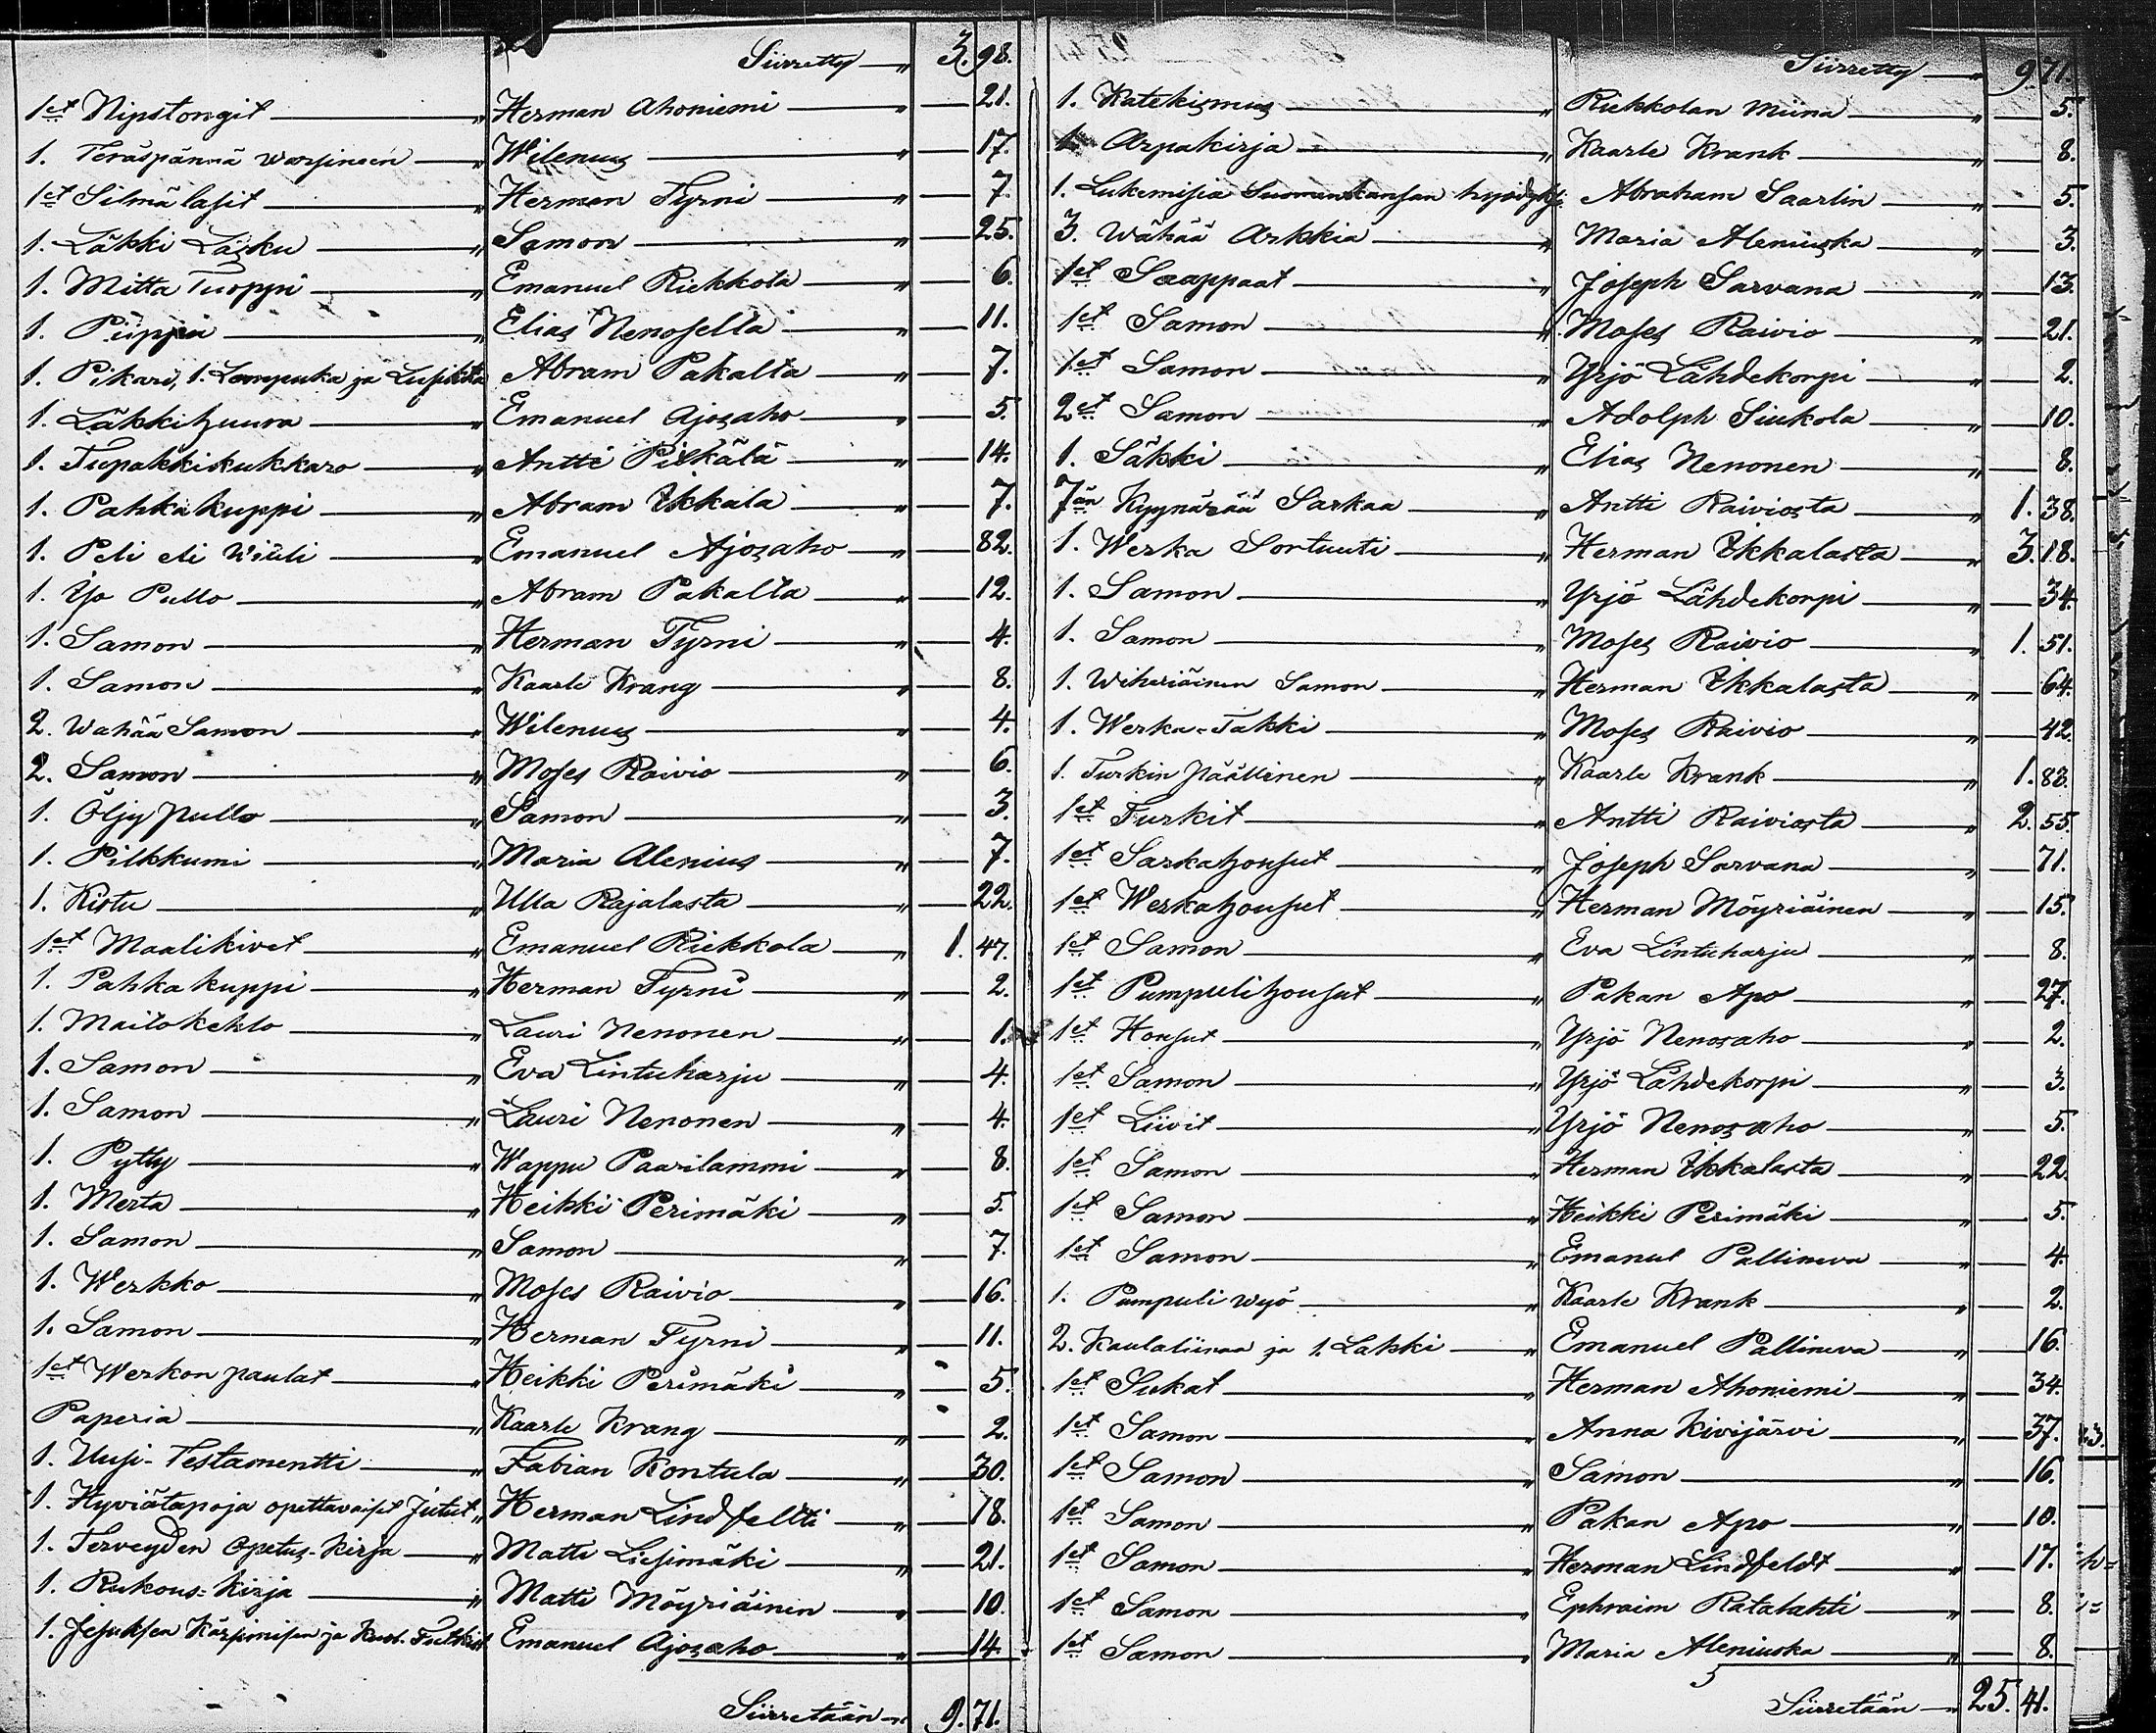 Siirretty „ 3. 98.
1et Nipstongit „ Herman Ahoniemi „ 21.
1. Teräspännä warsineen „ Wilenus „ 17.
1et Silmälasit „ Herman Tyrni „ 7.
1. Läkki Läsku „ Samon „ 25.
1. Mitta Tuoppi „ Emanuel Riekkola „ 6.
1. Piippu „ Elias Nenosella „ 11.
1. Pikari, 1. Lampuka ja Lusikka Abram Pakalta „ 7.
1. Läkkihuura „ Emanuel Ajosaho „ 5.
1. Tupakkikukkaro „ Antti Pitkälä „ 14.
1. Pahkakuppi „ Abram Ikkala „ 7.
1. Peli eli Wiuli „ Emanuel Ajosaho „ 82.
1. Iso Pullo „ Abram Pakalta „ 12.
1. Samon „ Herman Tyrni „ 4.
1. Samon „ Kaarle Krang „ 8.
2. Wähää Samon „ Wilenus „ 4.
2. Samon „ Moses Raivio „ 6.
1. Öljy pullo „ Samon „ 3.
1. Pilkkumi „ Maria Alenius „ 7.
1. Kistu „ Ulla Rajalasta „ 22.
1et Maalikivet „ Emanuel Riekkola „ 1. 47.
1. Pahkakuppi „ Herman Tyrni „ 2.
1. Maitokehlo „ Lauri Nenonen „ 1.
1. Samon „ Eva Lintuharju „ 4.
1. Samon „ Lauri Nenonen „ 4.
1. Pytty „ Wappu Paarilammi „ 8.
1. Merta „ Heikki Perimäki „ 5.
1. Samon „ Samon „ 7.
1. Werkko „ Moses Raivio „ 16.
1. Samon „ Herman Tyrni „ 11.
1et Werkon paulat „ Heikki Perimäki „ 5.
Paperia „ Kaarle Krang „ 2.
1. Uusi-Testamentti „ Fabian Kontula „ 30.
1. Hyviätapoja opettavaiset Jutut „ Herman Lindfeltti „ 18.
1. Terveyden Opetus-Kirja „ Matti Liesimäki „ 21.
1. Rukous-Kirja „ Matti Möyriäinen „ 10.
1. Jesuksen Kärsimisen ja Kuol. Tutkist. Emanuel Ajosaho „ 14.
Siirretään „ 9. 71.
Siirretty „ 9. 71.
1. Katekismus „ Riekkolan Miina „ 5.
1. Arpakirja „ Kaarle Krank „ 8.
1. Lukemisia Suomenkansan hyödyksi Abraham Saarlin „ 5.
3. Wähää Arkkia „ Maria Aleniuska „ 3.
1et Saappaat „ Joseph Sarvana „ 13.
1et Samon „ Moses Raivio „ 21.
1et Samon „ Yrjö Lähdekorpi „ 2.
2et Samon „ Adolph Siukola „ 10.
1. Säkki „ Elias Nenonen „ 8.
7än Kyynärää Sarkaa „ Antti Raiviosta „ 1. 38.
1. Werka Sortuuti „ Herman Ikkalasta „ 3. 18.
1. Samon „ Yrjö Lähdekorpi „ 34.
1. Samon „ Moses Raivio „ 1. 51.
1. Wiheriäinen Samon „ Herman Ikkalasta „ 64.
1. Werka-Takki „ Moses Raivio „ 42.
1. Turkin päällinen „ Kaarle Krank „ 1. 83.
1et Turkit „ Antti Raiviosta „ 2. 55.
1et Sarkahousut „ Joseph Sarvana „ 71.
1et Werkahousut „ Herman Möyriäinen „ 15.
1et Samon „ Eva Lintuharju „ 8.
1et Pumpulihousut „ Pakan Apo „ 27.
1et Housut „ Yrjö Nenosaho „ 2.
1et Samon „ Yrjö Lähdekorpi „ 3.
1et Liivit „ Yrjö Nenosaho „ 5.
1et Samon „ Herman Ikkalasta „ 22.
1et Samon „ Heikki Perimäki „ 5.
1et Samon „ Emanuel Pallineva „ 4.
1. Pumpuli Wyö „ Kaarle Krank „ 2.
2. Kaulaliinaa ja 1. Lakki „ Emanuel Pallineva „ 16.
1et Sukat „ Herman Ahoniemi „ 34.
1et Samon „ Anna Kivijärvi „ 37.
1et Samon „ Samon „ 16.
1et Samon „ Pakan Apo „ 10.
1et Samon „ Herman Lindfeldt „ 17.
1et Samon „ Ephraim Ratalahti „ 8.
1et Samon „ Maria Aleniuska „ 8.
Siirretään „ 25. 41.